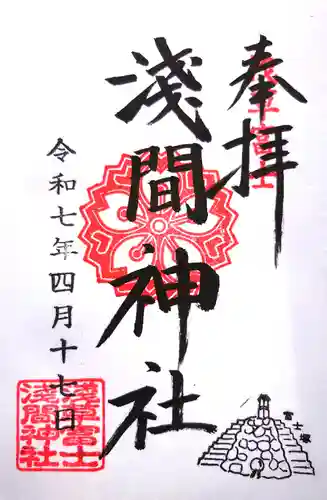 奉拝
淺間神社
令和七年四月十七日
富士塚
浅草富士
浅間神社